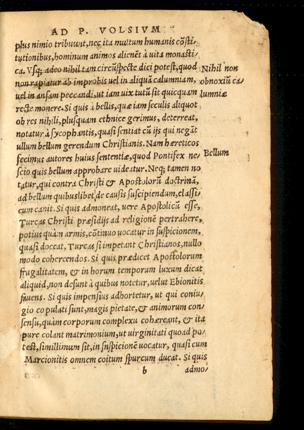 AD P. VOLSIVM
plus nimio tribuunt, nec ita multum humanis cōsti,
tutionibus, hominum animos alienēt à uita monasti,
ca. Vsq; adeo nihil tam circūspecte dici potest, quod
non rapiatur ab improbis uel in aliquā calumniam,
uel in ansam peccandi, ut iam uix tutū sit quicquam
recte monere. Si quis à bellis, quæ iam seculis aliquot
ob res nihili, plusquam ethnice gerimus, deterreat,
notatur à sycophantis, quasi sentiat cū ijs qui negāt
ullum bellum gerendum Christianis. Nam hæreticos
fecimus autores huius sententiæ, quod Pontifex ne,
scio quis bellum approbare uideatur. Neq; tamen no
tatur, qui contra Christi & Apostolorū doctrinā,
ad bellum quibuslibet de causis suscipiendum, classi,
cum canit. Si quis admoneat, uere Apostolicū esse,
Turcas Christi præsidijs ad religionē pertrahere,
potius quàm armis, cōtinuo uocatur in suspicionem,
quasi doceat, Turcas si impetant Christianos, nullo
modo cohercendos. Si quis prædicet Apostolorum
frugalitatem, & in horum temporum luxum dicat
aliquid, non desunt à quibus notetur, uelut Ebionitis
fauens. Si quis impensius adhortetur, ut qui coniu,
gio copulati sunt, magis pietate, & animorum con,
sensu, quàm corporum complexu cohæreant, & ita
pure colant matrimonium, ut uirginitati quoad po,
test, simillimum sit, in suspicionē uocatur, quasi cum
Marcionitis omnem coitum spurcum ducat. Si quis
b admo,
Nihil non
obnoxiū ca,
lumniæ
Bellum